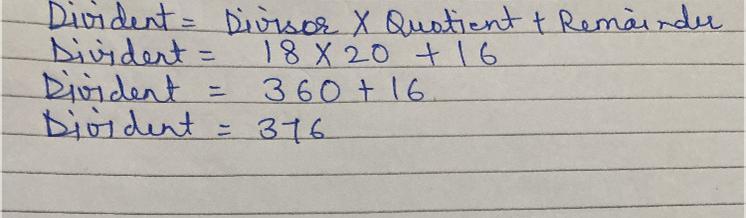 Divident = Divisor X Quotient + Remainder
Divident = 18 X 20 + 16
Divident = 360 + 16
Divident = 376